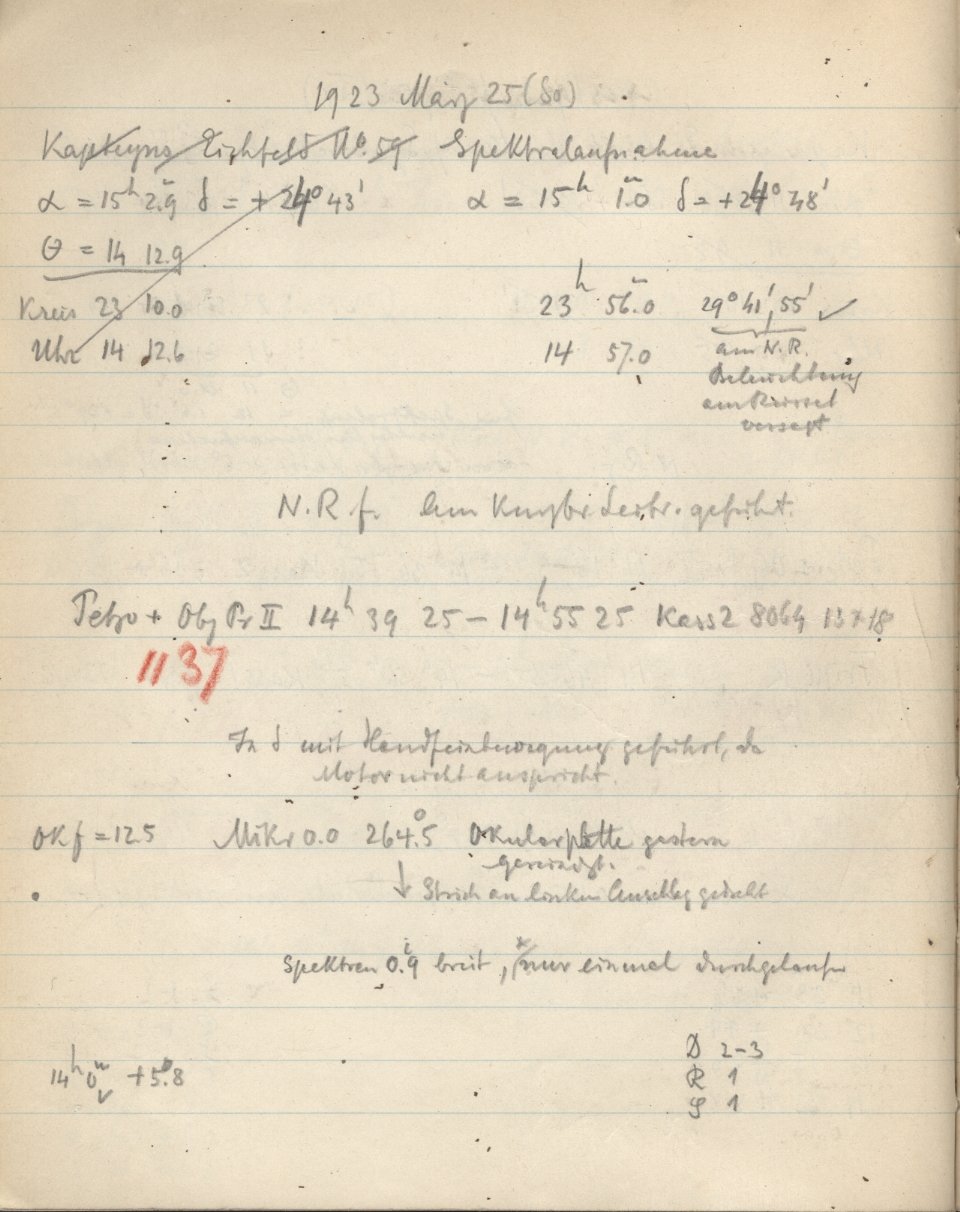 1923 März 25 (So)
Kapteyns Eichfeld No. 59 Spektralaufnahme
α = 15h 2m.9 δ = + 24° 43' α = 15h 1m.0 δ = + 24° 48'
θ = 14 12.9
Kreis 23 10.0 23h 56m.0 29° 41', 55' ✓
Uhr 14 12.6 14 57.0 am N.R.
Beleuchtung
am
versagt
N.R. f. geführt.
+ Obj Pr II 14h 39 25 – 14h 55 25 Kass 2 8064 13×18
1137
In δ mit Handfeinbewegung geführt, da
Motor nicht anspricht.
OK f = 12.5 Mikr 0.0 264°.5 Okularplatte gestern
gereinigt.
↓ Strich an linken Anschlag gedreht
Spektren 0.9 breit, * nur einmal durchgelaufen
D 2–3
14h 0m + 5°.8 R 1
S 1